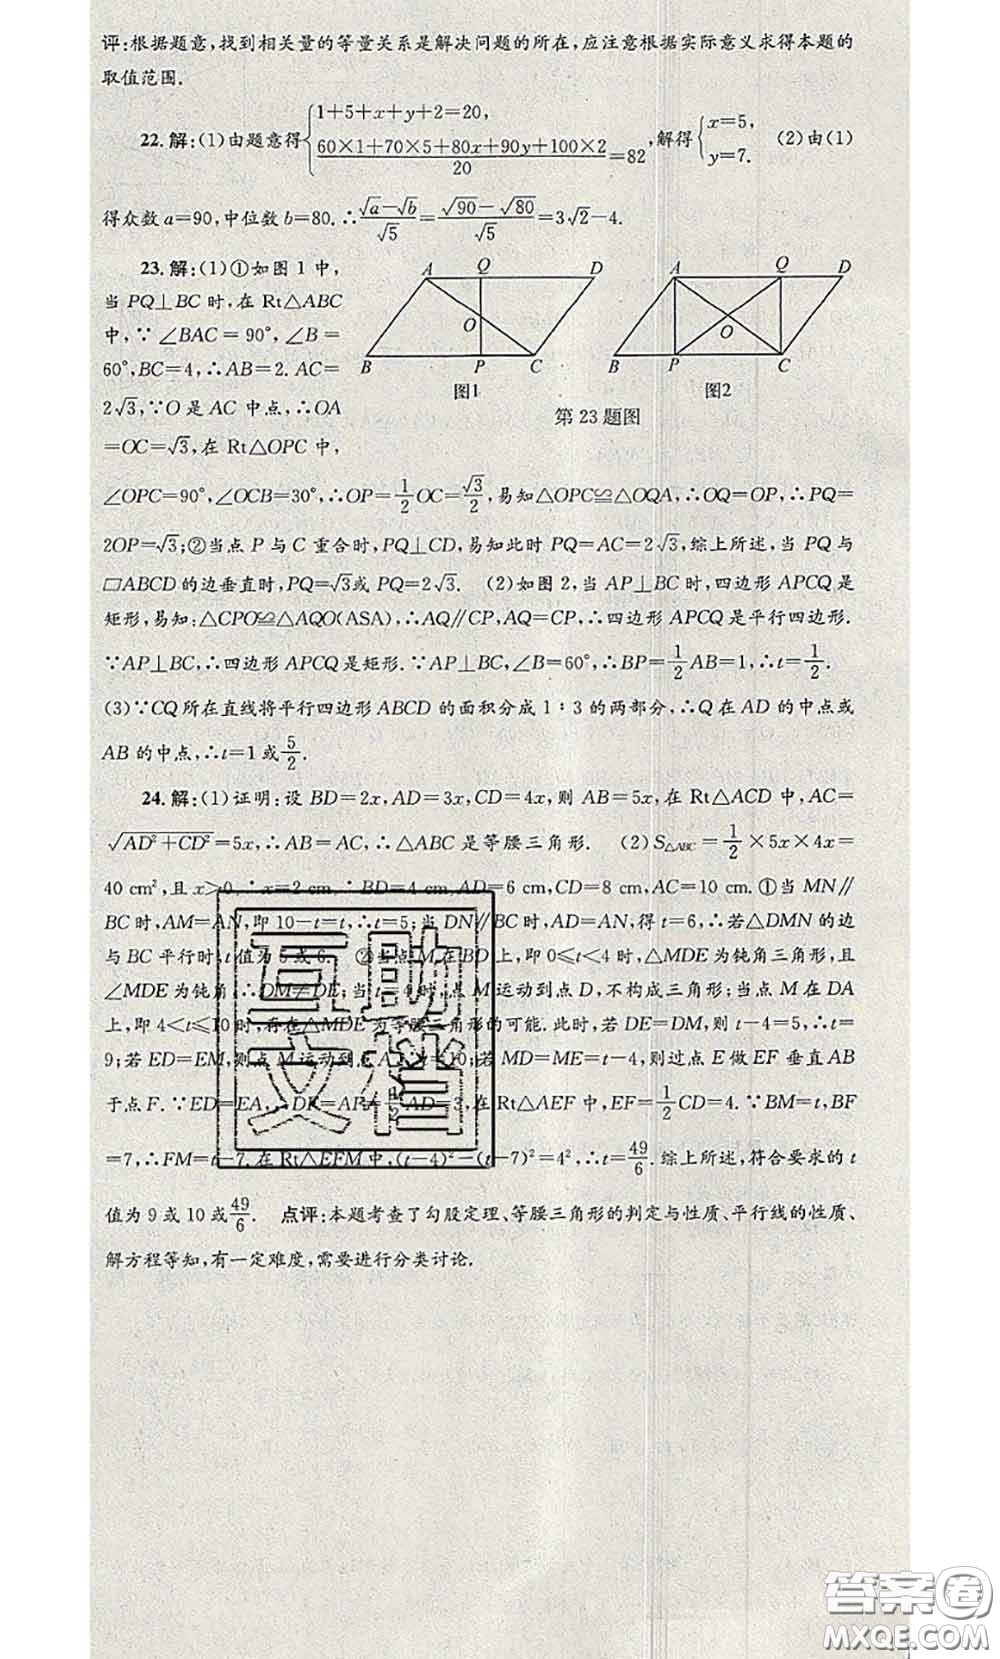 评:根据题意,找到相关量的等量关系是解决问题的所在,应注意根据实际意义求得本题的
取值范围.
22.解:(1)由题意得{1+5+x+y+2=20, (60×1+70×5+80x+90y+100×2)/20=82,解得{x=5, y=7. (2)由(1)
得众数a=90,中位数b=80.∴(√a-√b)/√5=(√90-√80)/√5=3√2-4.
23.解:(1)①如图1中,
当PQ⊥BC时,在Rt△ABC
中,∵∠BAC=90°,∠B=
60°,BC=4,∴AB=2.AC=
2√3,∵O是AC中点,∴OA
=OC=√3,在Rt△OPC中,
A Q D O B P C
图1
A Q D O B P C
图2
第23题图
∠OPC=90°,∠OCB=30°,∴OP=1/2OC=√3/2,易知△OPC≌△OQA,∴OQ=OP,∴PQ=
2OP=√3;②当点P与C重合时,PQ⊥CD,易知此时PQ=AC=2√3,综上所述,当PQ与
□ABCD的边垂直时,PQ=√3或PQ=2√3. (2)如图2,当AP⊥BC时,四边形APCQ是
矩形,易知:△CPO≌△AQO(ASA),∴AQ∥CP,AQ=CP,∴四边形APCQ是平行四边形.
∵AP⊥BC,∴四边形APCQ是矩形.∵AP⊥BC,∠B=60°,∴BP=1/2AB=1,∴t=1/2.
(3)∵CQ所在直线将平行四边形ABCD的面积分成1:3的两部分,∴Q在AD的中点或
AB的中点,∴t=1或5/2.
24.解:(1)证明:设BD=2x,AD=3x,CD=4x,则AB=5x,在Rt△ACD中,AC=
√(AD²+CD²)=5x,∴AB=AC,∴△ABC是等腰三角形. (2)S△ABC=1/2×5x×4x=
40 cm²,且x>0,∴x=2 cm.∴BD=4 cm,AD=6 cm,CD=8 cm,AC=10 cm.①当MN∥
BC时,AM=AN,即10-t=t,∴t=5;当DN∥BC时,AD=AN,得t=6,∴若△DMN的边
与BC平行时,t值为5或6. ②当点M在BD上,即0≤t<4时,△MDE为钝角三角形,且
∠MDE为钝角,∴DM≠DE;当t=4时,点M运动到点D,不构成三角形;当点M在DA
上,即4<t≤10时,存在△MDE为等腰三角形的可能.此时,若DE=DM,则t-4=5,∴t=
9;若ED=EM,则点M运动到点A,∴t=10;若MD=ME=t-4,则过点E做EF垂直AB
于点F.∵ED=EA,∴DF=AF=1/2AD=3,在Rt△AEF中,EF=1/2CD=4.∵BM=t,BF
=7,∴FM=t-7.在Rt△EFM中,(t-4)²-(t-7)²=4²,∴t=49/6.综上所述,符合要求的t
值为9或10或49/6. 点评:本题考查了勾股定理、等腰三角形的判定与性质、平行线的性质、
解方程等知,有一定难度,需要进行分类讨论.
互助
文档
答案卷
MXQE.COM